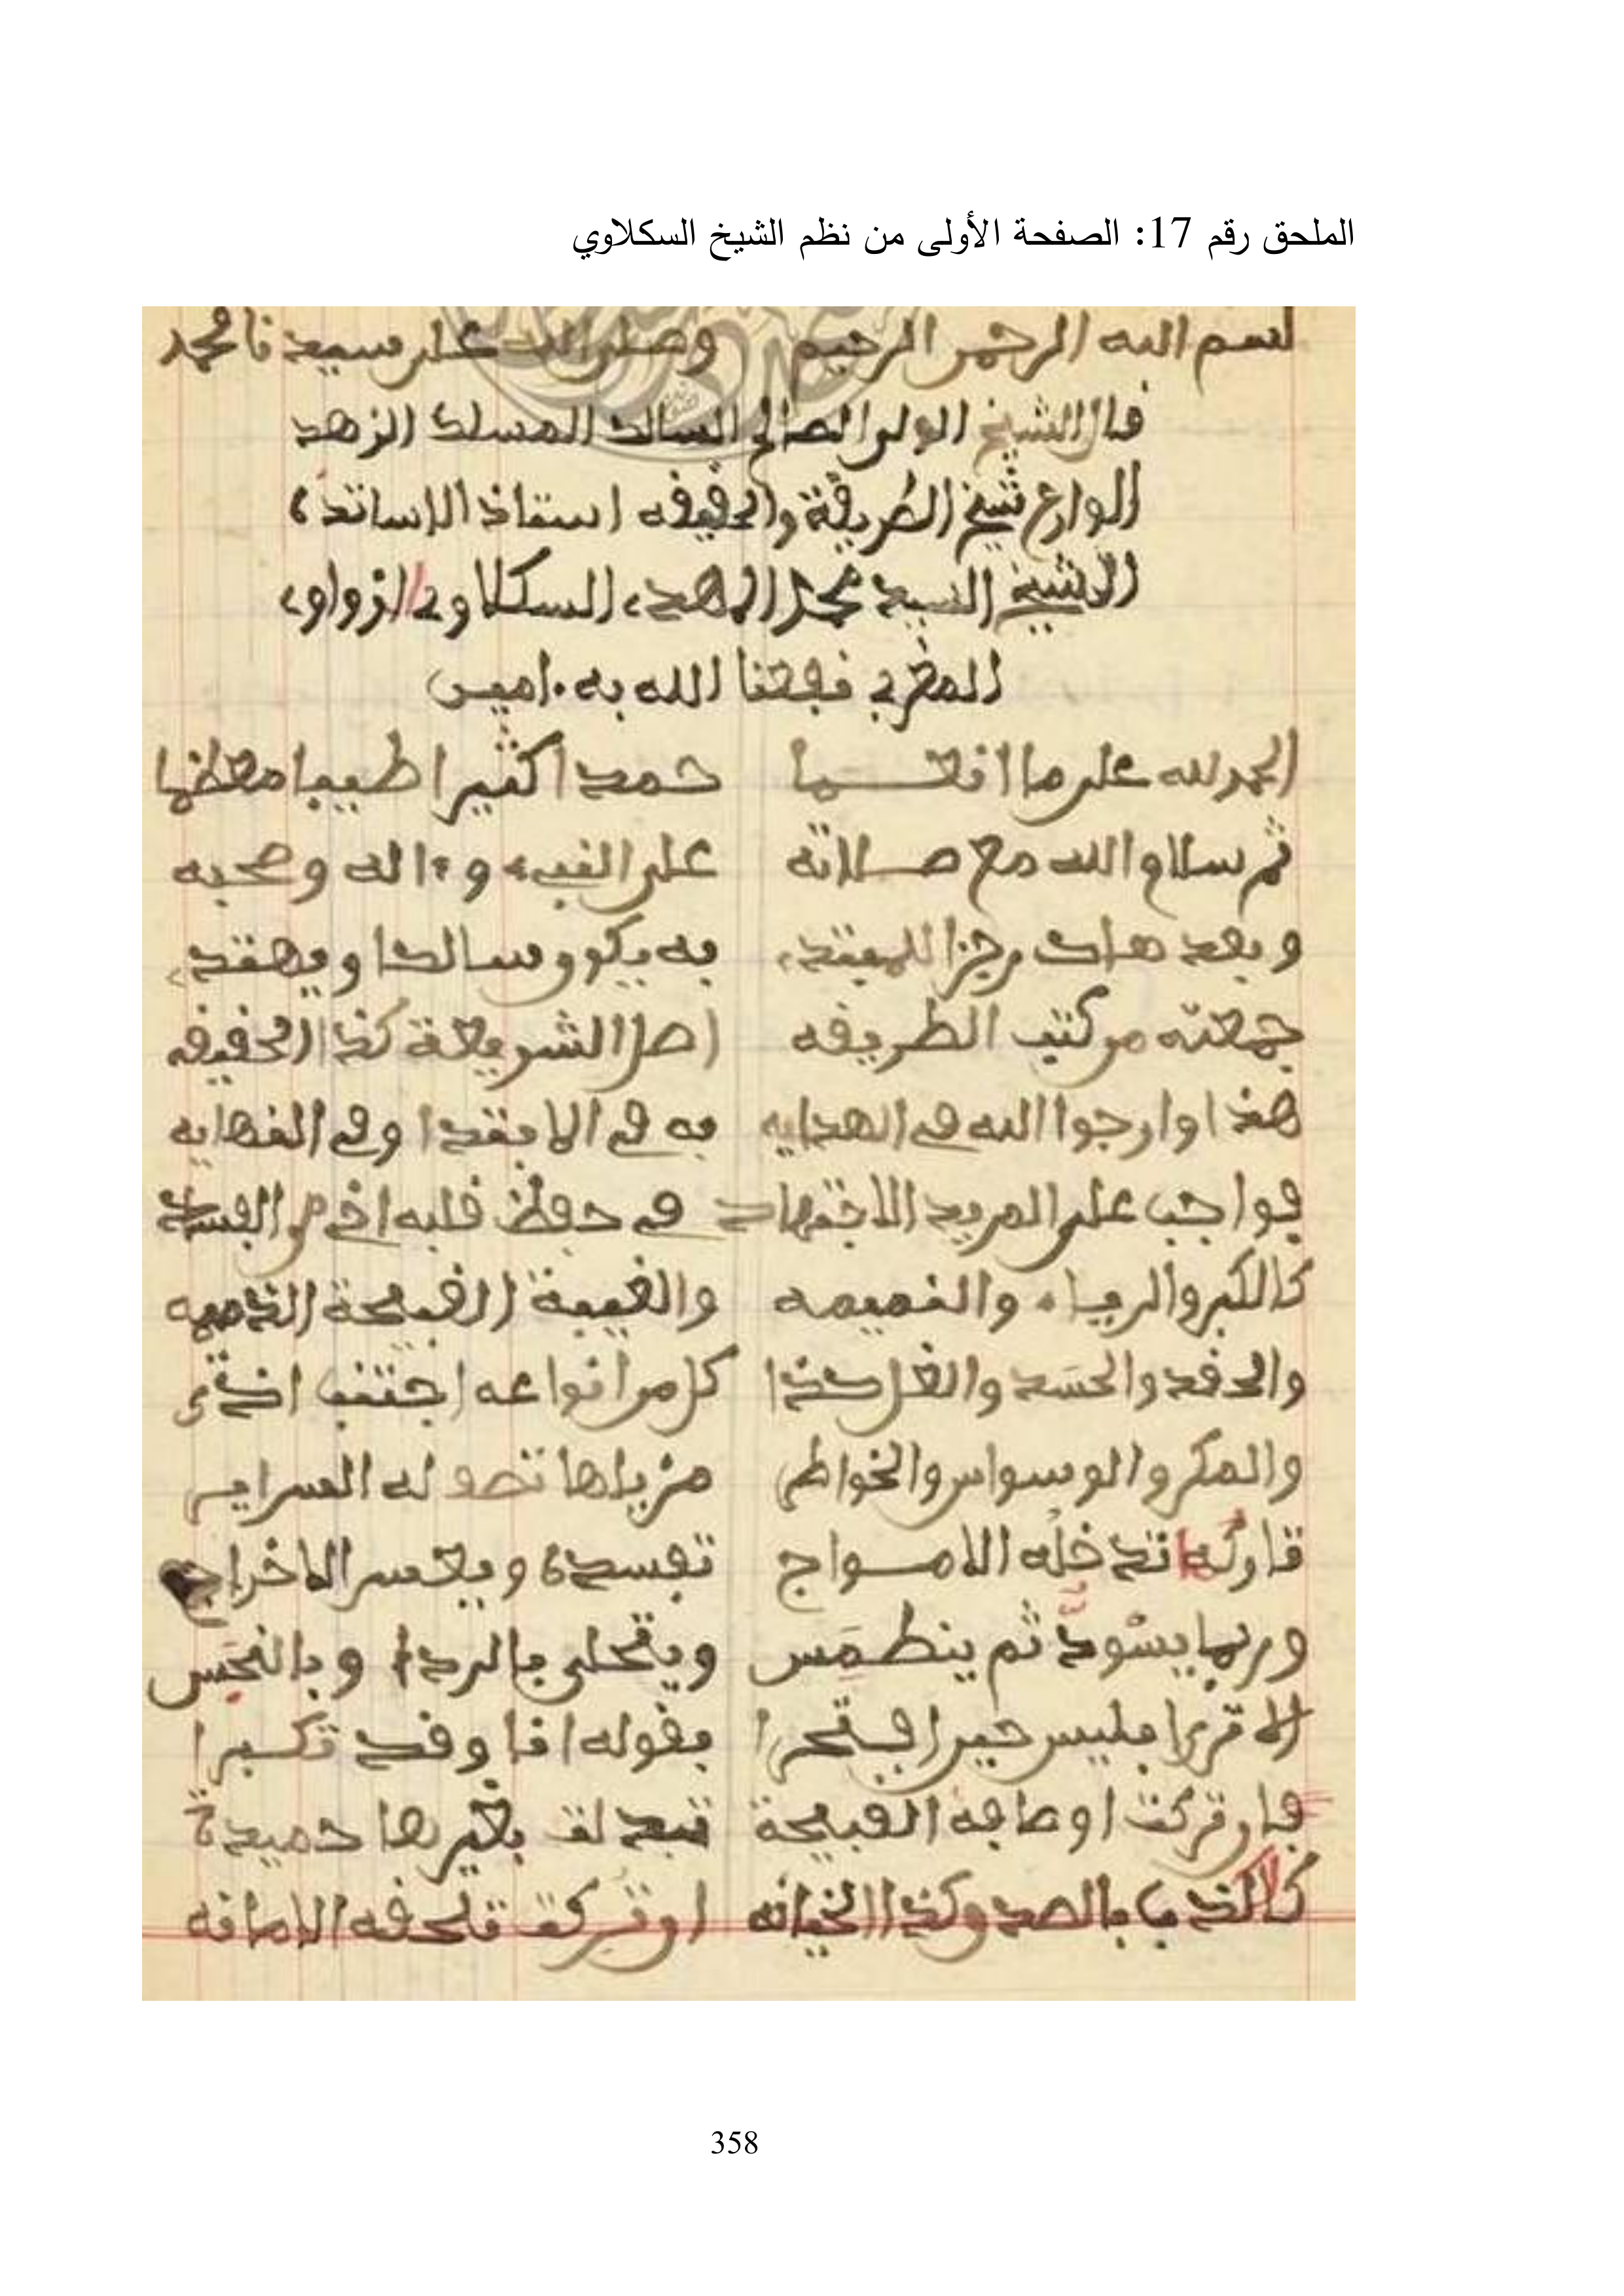 الملحق رقم 17: الصفحة الأولى من نظم الشيخ السكلاوي
بسم الله الرحمن الرحيم وصلى الله على سيدنا محمد
قال الشيخ الولي الصالح السالك المسلك الزهد
الوارع شيخ الطريقة والحقيقه استاذ الاساتذة
الشيخ السيد محمد المهدي السكلاوي الزواوي
المغربي نفعنا الله به ءامين
الحمد لله على ما انعما حمدا كثيرا طيبا معظما
ثم سلام الله مع صلاته على النبيء وءاله وصحبه
وبعد هاك رجزا للمبتدي به يكون سالكا ويهتدي
جمعته من كتب الطريقه اصل الشريعة كذا الحقيقه
هذا وارجوا الله في الهدايه به في الابتدا وفي النهايه
فواجب على المريد الاجتهاد في حفظ قلبه اخي من الفساد
كالكبر والرياء والنميمه والغيبة القبيحة الذميمه
والحقد والحسد والغل كذا كل من انواعه اجتنب
والمكر والوسواس والخواطر له السراير
تاركها تدخله الامواج تفسده ويعسر الاخراج
وربما يسود ثم ينطمس ويتحلى بالردا وبالنجس
الا ترى ابليس حين افتخرا بقوله انا وقد تكبرا
فان تركت اوصافه القبيحة تبدلت بغيرها حميدة
كالكذب بالصدق وكذا الخيانه ان تركت تلحقه الامانه
358